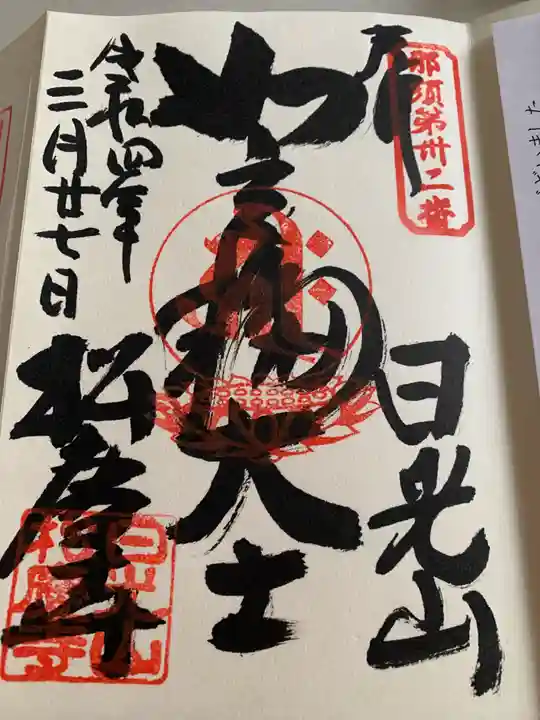 那須第卅二番
日光山
如意輪大士
令和四年
三月廿七日
松慶寺
日光山
松慶寺